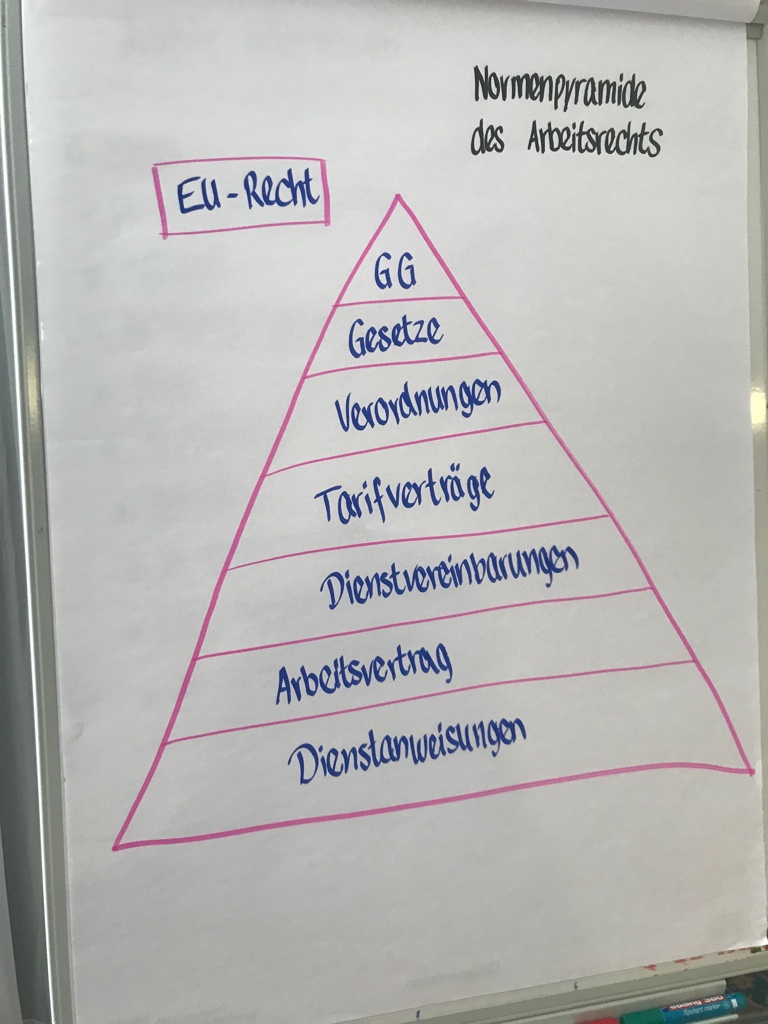 Normenpyramide
des Arbeitsrechts
EU-Recht
GG
Gesetze
Verordnungen
Tarifverträge
Dienstvereinbarungen
Arbeitsvertrag
Dienstanweisungen
edding 380
flipchart marker